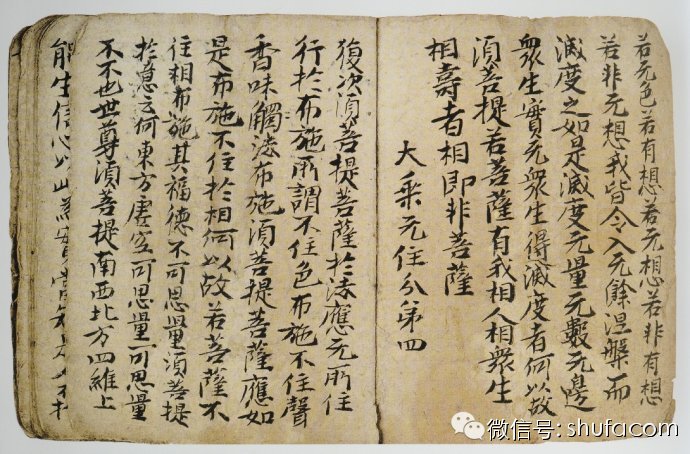 若无色若有想若无想若非有想
若非无想我皆令入无餘涅槃而
滅度之如是滅度无量无數无邊
衆生實无衆生得滅度者何以故
須菩提若菩薩有我相人相衆生
相壽者相即非菩薩
大乘无住分第四
復次須菩提菩薩於法應无所住
行於布施所謂不住色布施不住聲
香味觸法布施須菩提菩薩應如
是布施不住於相何以故若菩薩不
住相布施其福德不可思量須菩提
於意云何東方虛空可思量可思量
不不也世尊須菩提南西北方四維上
能生信心以此為實當知是
微信号: shufacom